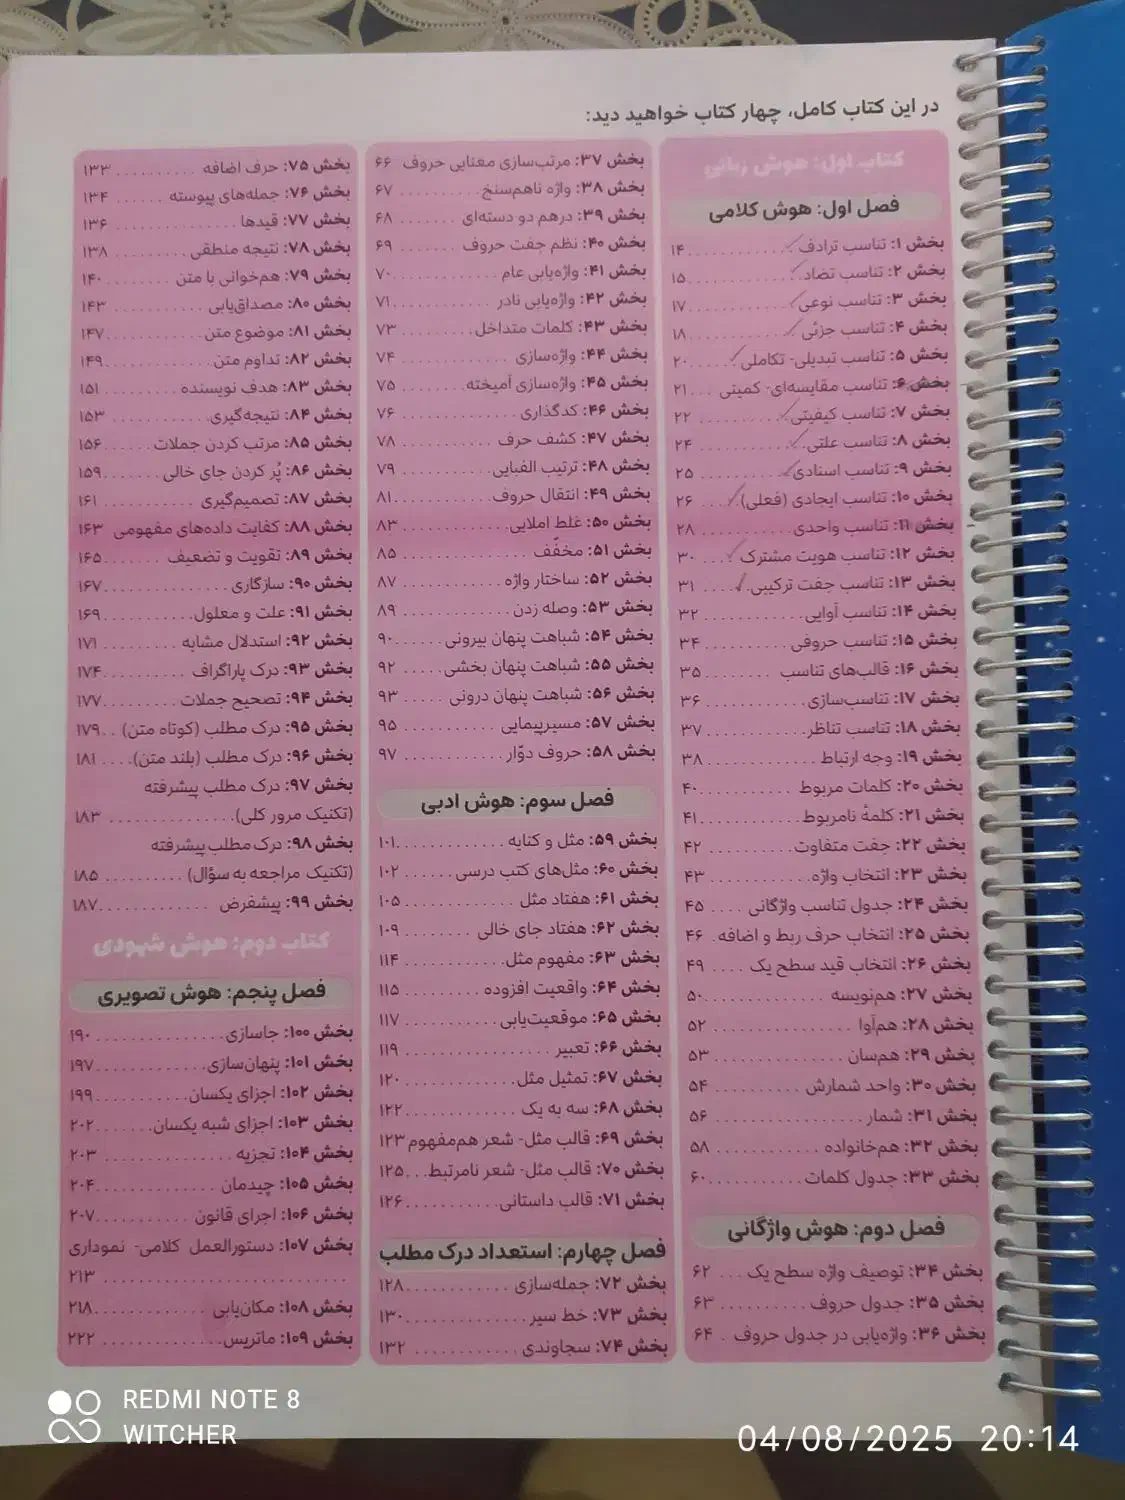 در این کتاب کامل، چهار کتاب خواهید دید:
کتاب اول: هوش زبانی
فصل اول: هوش کلامی
بخش ۱: تناسب ترادف ۱۴
بخش ۲: تناسب تضاد ۱۵
بخش ۳: تناسب نوعی ۱۷
بخش ۴: تناسب جزئی ۱۸
بخش ۵: تناسب تبدیلی- تکاملی ۲۰
بخش ۶: تناسب مقایسه‌ای- کمیتی ۲۱
بخش ۷: تناسب کیفیتی ۲۲
بخش ۸: تناسب علتی ۲۴
بخش ۹: تناسب اسنادی ۲۵
بخش ۱۰: تناسب ایجادی (فعلی) ۲۶
بخش ۱۱: تناسب واحدی ۲۸
بخش ۱۲: تناسب هویت مشترک ۳۰
بخش ۱۳: تناسب جفت ترکیبی ۳۱
بخش ۱۴: تناسب آوایی ۳۲
بخش ۱۵: تناسب حروفی ۳۴
بخش ۱۶: قالب‌های تناسب ۳۵
بخش ۱۷: تناسب‌سازی ۳۶
بخش ۱۸: تناسب تناظر ۳۷
بخش ۱۹: وجه ارتباط ۳۸
بخش ۲۰: کلمات مربوط ۴۰
بخش ۲۱: کلمهٔ نامربوط ۴۱
بخش ۲۲: جفت متفاوت ۴۲
بخش ۲۳: انتخاب واژه ۴۳
بخش ۲۴: جدول تناسب واژگانی ۴۵
بخش ۲۵: انتخاب حرف ربط و اضافه ۴۶
بخش ۲۶: انتخاب قید سطح یک ۴۹
بخش ۲۷: هم‌نویسه ۵۰
بخش ۲۸: هم‌آوا ۵۲
بخش ۲۹: هم‌سان ۵۳
بخش ۳۰: واحد شمارش ۵۴
بخش ۳۱: شمار ۵۶
بخش ۳۲: هم‌خانواده ۵۸
بخش ۳۳: جدول کلمات ۶۰
فصل دوم: هوش واژگانی
بخش ۳۴: توصیف واژه سطح یک ۶۲
بخش ۳۵: جدول حروف ۶۳
بخش ۳۶: واژه‌یابی در جدول حروف ۶۴
بخش ۳۷: مرتب‌سازی معنایی حروف ۶۶
بخش ۳۸: واژه ناهم‌سنخ ۶۷
بخش ۳۹: درهم دو دسته‌ای ۶۸
بخش ۴۰: نظم جفت حروف ۶۹
بخش ۴۱: واژه‌یابی عام ۷۰
بخش ۴۲: واژه‌یابی نادر ۷۱
بخش ۴۳: کلمات متداخل ۷۳
بخش ۴۴: واژه‌سازی ۷۴
بخش ۴۵: واژه‌سازی آمیخته ۷۵
بخش ۴۶: کدگذاری ۷۶
بخش ۴۷: کشف حرف ۷۸
بخش ۴۸: ترتیب الفبایی ۷۹
بخش ۴۹: انتقال حروف ۸۱
بخش ۵۰: غلط املایی ۸۳
بخش ۵۱: مخفّف ۸۵
بخش ۵۲: ساختار واژه ۸۷
بخش ۵۳: وصله زدن ۸۹
بخش ۵۴: شباهت پنهان بیرونی ۹۰
بخش ۵۵: شباهت پنهان بخشی ۹۲
بخش ۵۶: شباهت پنهان درونی ۹۳
بخش ۵۷: مسیرپیمایی ۹۵
بخش ۵۸: حروف دوّار ۹۷
فصل سوم: هوش ادبی
بخش ۵۹: مثل و کنایه ۱۰۱
بخش ۶۰: مثل‌های کتب درسی ۱۰۲
بخش ۶۱: هفتاد مثل ۱۰۵
بخش ۶۲: هفتاد جای خالی ۱۰۹
بخش ۶۳: مفهوم مثل ۱۱۴
بخش ۶۴: واقعیت افزوده ۱۱۵
بخش ۶۵: موقعیت‌یابی ۱۱۷
بخش ۶۶: تعبیر ۱۱۹
بخش ۶۷: تمثیل مثل ۱۲۰
بخش ۶۸: سه به یک ۱۲۲
بخش ۶۹: قالب مثل- شعر هم‌مفهوم ۱۲۳
بخش ۷۰: قالب مثل- شعر نامرتبط ۱۲۵
بخش ۷۱: قالب داستانی ۱۲۶
فصل چهارم: استعداد درک مطلب
بخش ۷۲: جمله‌سازی ۱۲۸
بخش ۷۳: خط سیر ۱۳۰
بخش ۷۴: سجاوندی ۱۳۲
بخش ۷۵: حرف اضافه ۱۳۳
بخش ۷۶: جمله‌های پیوسته ۱۳۴
بخش ۷۷: قیدها ۱۳۶
بخش ۷۸: نتیجه منطقی ۱۳۸
بخش ۷۹: هم‌خوانی با متن ۱۴۰
بخش ۸۰: مصداق‌یابی ۱۴۳
بخش ۸۱: موضوع متن ۱۴۷
بخش ۸۲: تداوم متن ۱۴۹
بخش ۸۳: هدف نویسنده ۱۵۱
بخش ۸۴: نتیجه‌گیری ۱۵۳
بخش ۸۵: مرتب کردن جملات ۱۵۶
بخش ۸۶: پُر کردن جای خالی ۱۵۹
بخش ۸۷: تصمیم‌گیری ۱۶۱
بخش ۸۸: کفایت داده‌های مفهومی ۱۶۳
بخش ۸۹: تقویت و تضعیف ۱۶۵
بخش ۹۰: سازگاری ۱۶۷
بخش ۹۱: علت و معلول ۱۶۹
بخش ۹۲: استدلال مشابه ۱۷۱
بخش ۹۳: درک پاراگراف ۱۷۴
بخش ۹۴: تصحیح جملات ۱۷۷
بخش ۹۵: درک مطلب (کوتاه متن) ۱۷۹
بخش ۹۶: درک مطلب (بلند متن) ۱۸۱
بخش ۹۷: درک مطلب پیشرفته
(تکنیک مرور کلی) ۱۸۳
بخش ۹۸: درک مطلب پیشرفته
(تکنیک مراجعه به سؤال) ۱۸۵
بخش ۹۹: پیشفرض ۱۸۷
کتاب دوم: هوش شهودی
فصل پنجم: هوش تصویری
بخش ۱۰۰: جاسازی ۱۹۰
بخش ۱۰۱: پنهان‌سازی ۱۹۷
بخش ۱۰۲: اجزای یکسان ۱۹۹
بخش ۱۰۳: اجزای شبه یکسان ۲۰۲
بخش ۱۰۴: تجزیه ۲۰۳
بخش ۱۰۵: چیدمان ۲۰۴
بخش ۱۰۶: اجرای قانون ۲۰۷
بخش ۱۰۷: دستورالعمل کلامی- نموداری
۲۱۳
بخش ۱۰۸: مکان‌یابی ۲۱۸
بخش ۱۰۹: ماتریس ۲۲۲
REDMI NOTE 8
WITCHER
04/08/2025 20:14